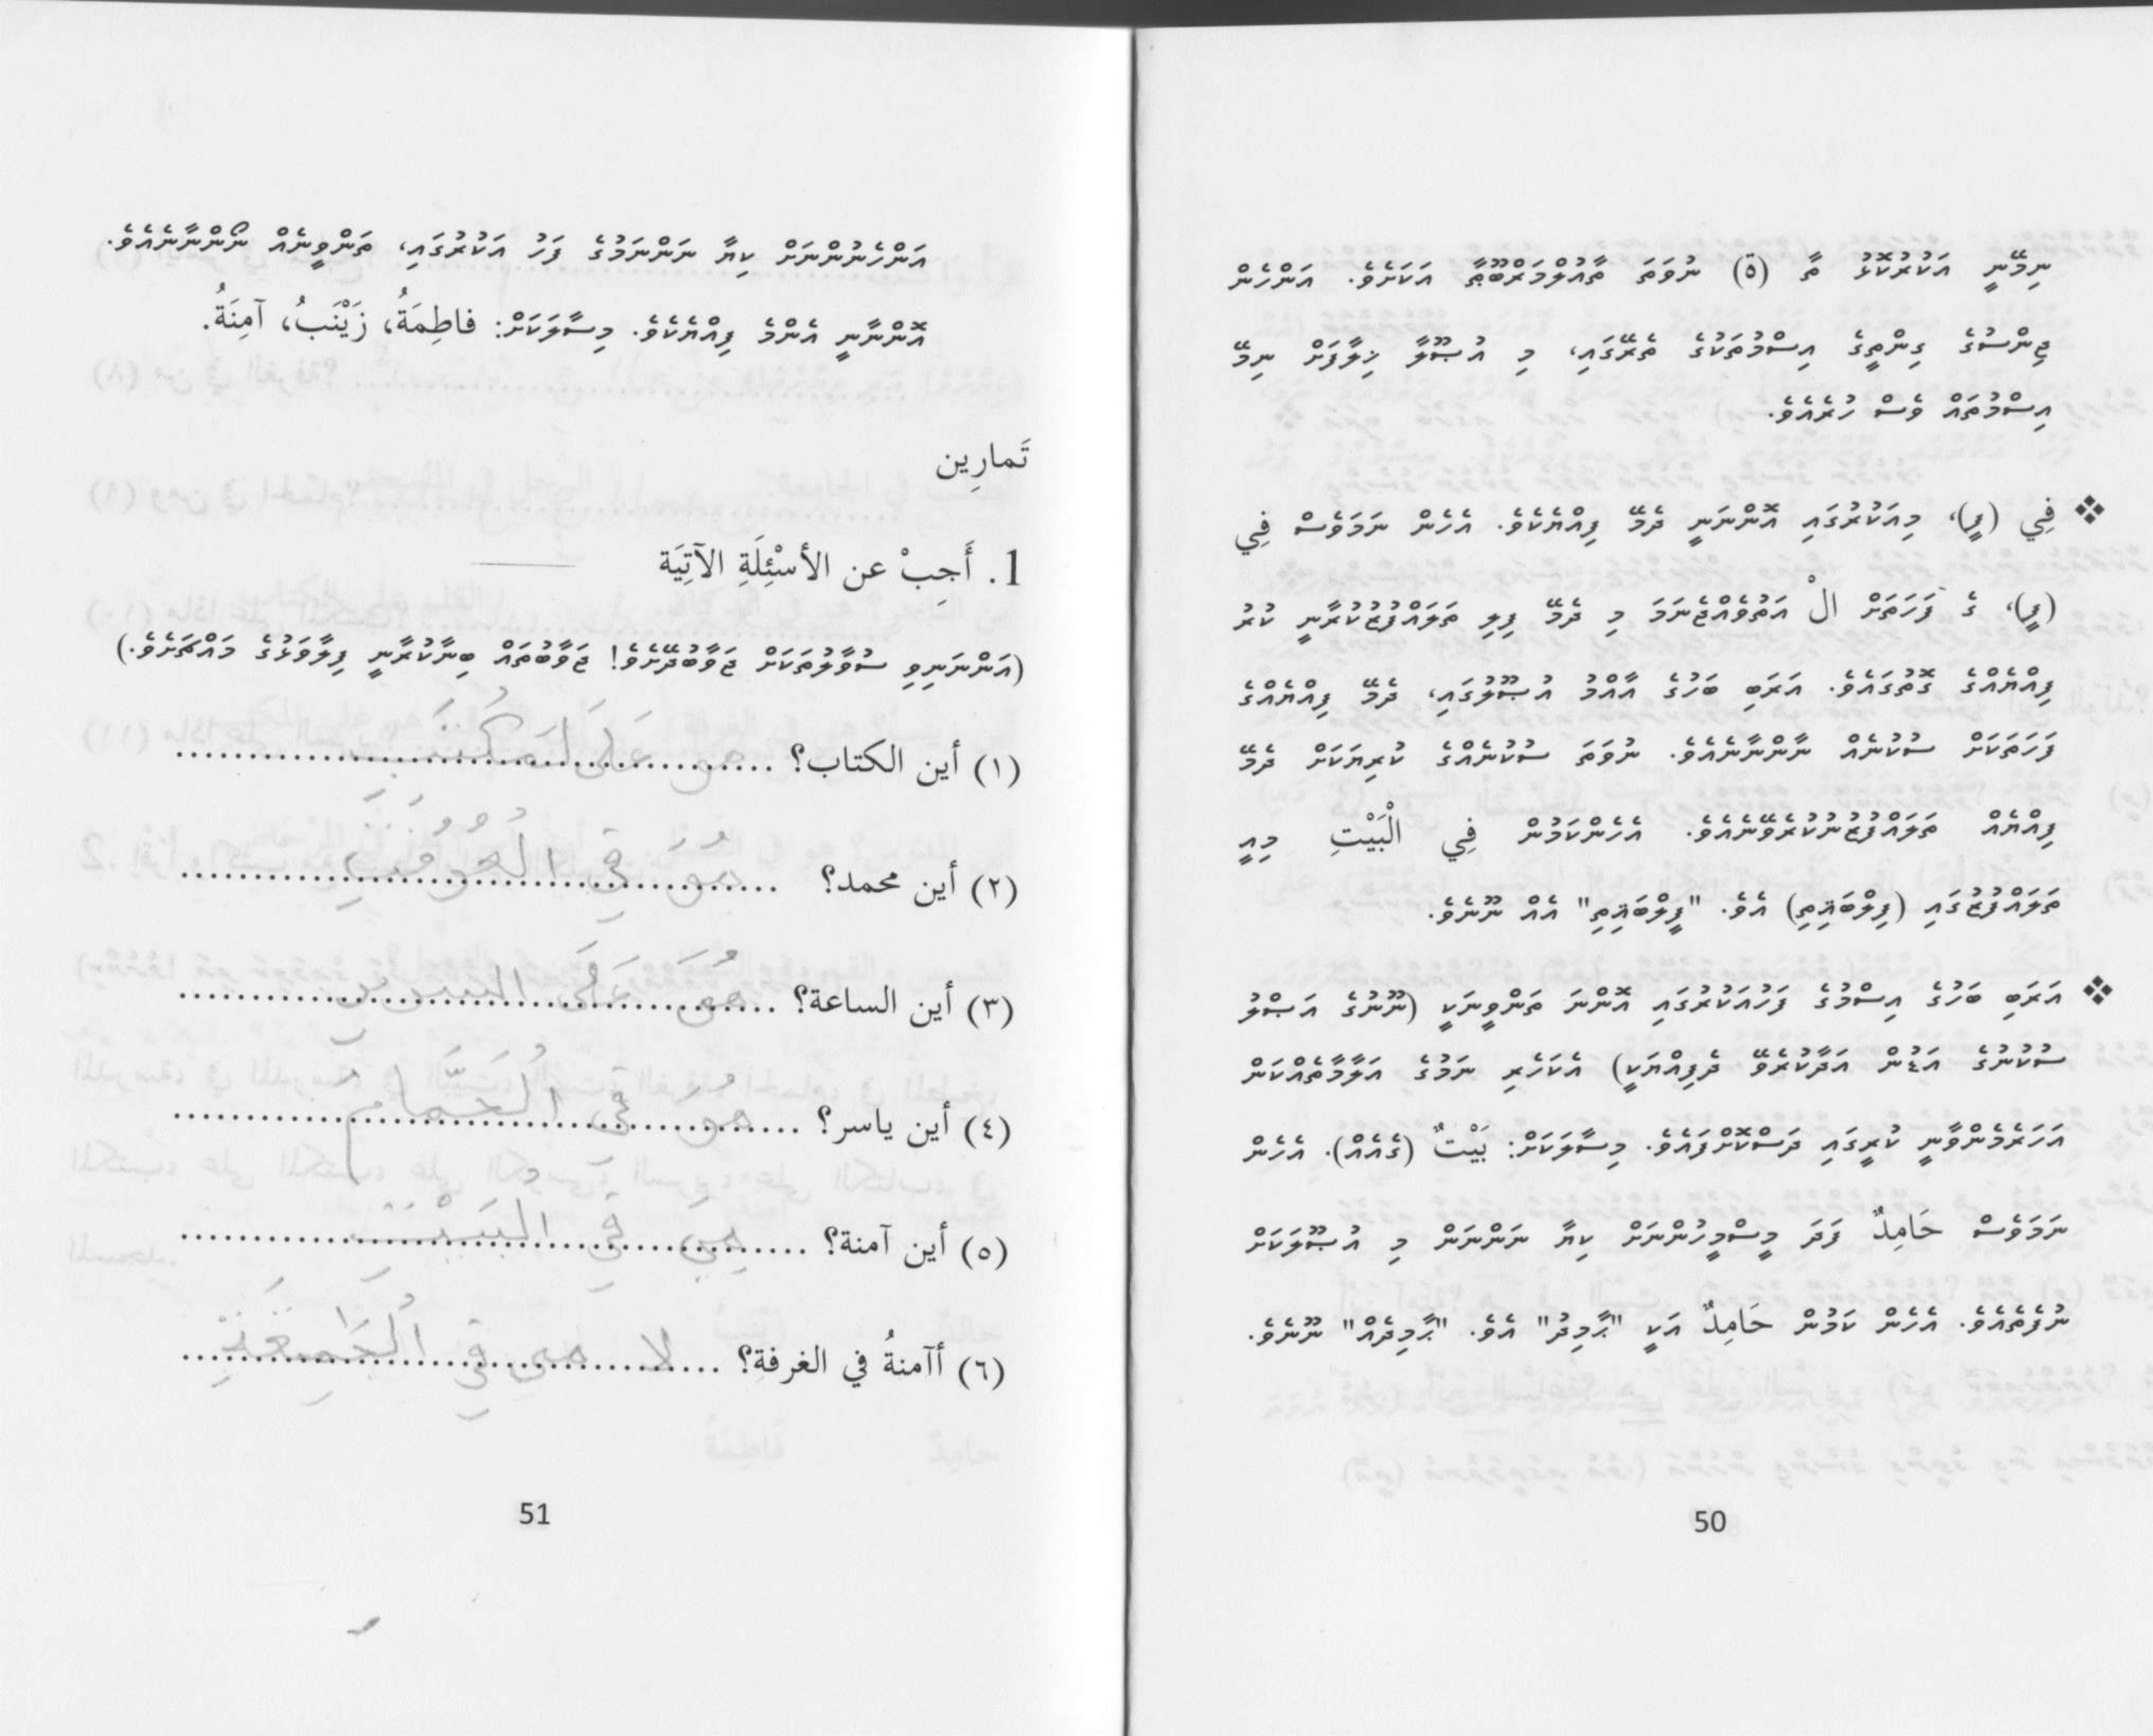 ނިމޭނީ އަކުރުކޮޅު ތާ (ة) ނުވަތަ ތާއުލްމަރްބޫޠާ އަކަށެވެ. އަންހެން
ޖިންސުގެ ގިންތީގެ އިސްމުތަކުގެ ތެރޭގައި، މި އުޞޫލާ ޚިލާފަށް ނިމޭ
އިސްމުތައް ވެސް ހުރެއެވެ.
❖ فِي (ފީ)، މިއަކުރުގައި އޮންނަނީ ދެމޭ ފިއްޔެކެވެ. އެހެން ނަމަވެސް فِي
(ފީ)، ގެ ފަހަތަށް الْ އަތުވެއްޖެނަމަ މި ދެމޭ ފިލި ތަލައްފުޒުކުރާނީ ކުރު
ފިއްޔެއްގެ ގޮތުގައެވެ. އަރަބި ބަހުގެ އާއްމު އުޞޫލުގައި، ދެމޭ ފިއްޔެއްގެ
ފަހަތަކަށް ސުކުނެއް ނާންނާނެއެވެ. ނުވަތަ ސުކުނެއްގެ ކުރިޔަކަށް ދެމޭ
ފިއްޔެއް ތަލައްފުޒުނުކުރެވޭނެއެވެ. އެހެންކަމުން فِي الْبَيْتِ މިއީ
ތަލައްފުޒުގައި (ފިލްބައިތި) އެވެ. "ފީލްބައިތި" އެއް ނޫނެވެ.
❖ އަރަބި ބަހުގެ އިސްމުގެ ފަހުއަކުރުގައި އޮންނަ ތަންވީނަކީ (ނޫނުގެ އަޞްލު
ސުކުނުގެ އަޑުން އަދާކުރެވޭ ދެފިއްޔަކީ) އެކަހެރި ނަމުގެ އަލާމާތެއްކަން
އަހަރެމެންވާނީ ކުރީގައި ދަސްކޮށްފައެވެ. މިސާލަކަށް: بَيْتٌ (ގެއެއް). އެހެން
ނަމަވެސް حَامِدٌ ފަދަ މީސްމީހުންނަށް ކިޔާ ނަންނަން މި އުޞޫލަކަށް
ނުފެތެއެވެ. އެހެން ކަމުން حَامِدٌ އަކީ "ޙާމިދު" އެވެ. "ޙާމިދެއް" ނޫނެވެ.
50
އަންހެނުންނަށް ކިޔާ ނަންނަމުގެ ފަހު އަކުރުގައި، ތަންވީނެއް ނޯންނާނެއެވެ.
އޮންނާނީ އެންމެ ފިއްޔެކެވެ. މިސާލަކަށް: فاطِمَةُ، زَيْنَبُ، آمِنَةُ.
تَمارِين
1. أَجِبْ عن الأسْئِلَةِ الآتِيَة
(އަންނަނިވި ސުވާލުތަކަށް ޖަވާބުދޭށެވެ! ޖަވާބުތައް ބިނާކުރާނީ ފިލާވަޅުގެ މައްޗަށެވެ.)
(١) أين الكتاب؟ هو عَلَى
(٢) أين محمد؟ هُوَ فِي
(٣) أين الساعة؟ هُوَ عَلَى السرير
(٤) أين ياسر؟ هُوَ فِي الْحَمَّام
(٥) أين آمنة؟ هِيَ فِي الْبَيْتِ
(٦) أآمنةُ في الغرفة؟ لا هي فِي الْجَامِعَةِ
51